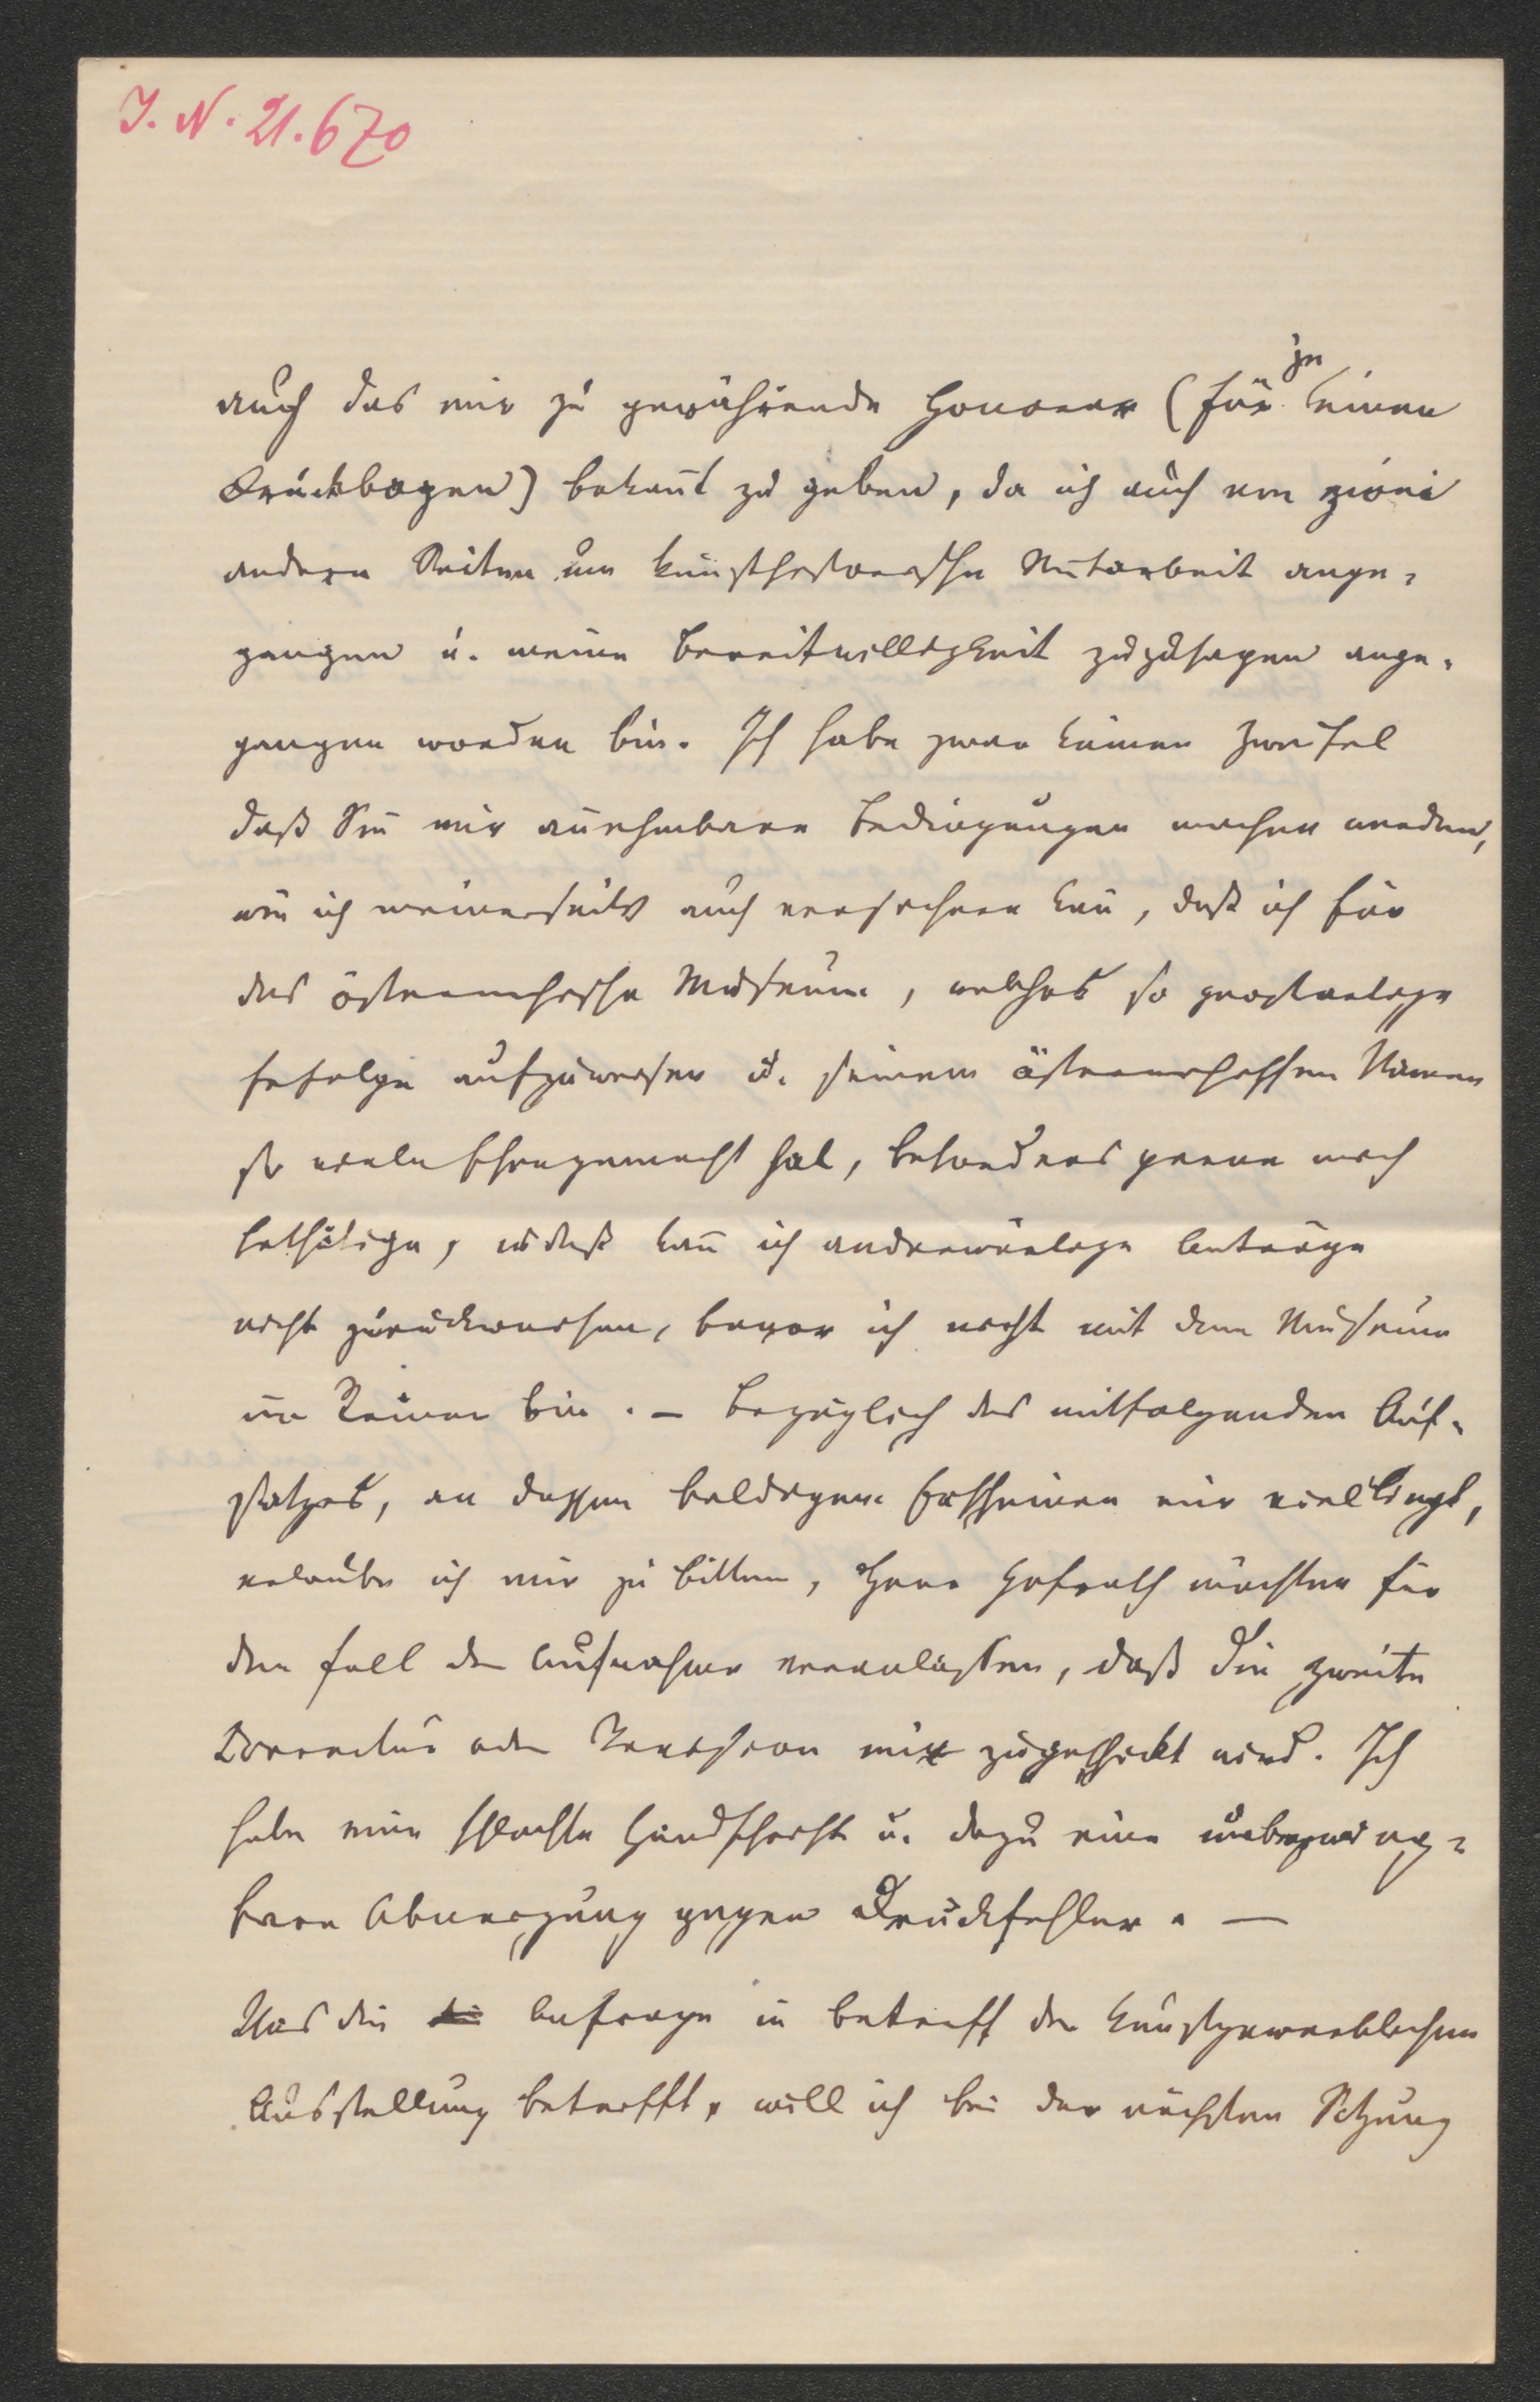 J. N. 21.670
auch das mir zu gewährende Honorar (für je einen
Druckbogen) bekannt zu geben, da ich auch von zwei
andern Seiten um kunsthistorische Mitarbeit ange-
gangen u. meine Bereitwilligkeit zuzusagen ange-
gangen worden bin. Ich habe zwar keinen Zweifel
daß Sie mir annehmbare Bedingungen machen werden,
wie ich meinerseits auch versichern kann, daß ich für
das österreichische Museum, welches so großartige
Erfolge aufzuweisen u. seinem österreichischen Namen
so viele Ehre gemacht hat, besonders gerne mich
bethätige, indeß kann ich anderweitige Anträge
nicht zurückweisen, bevor ich nicht mit dem Museum
im Reinen bin. – Bezüglich des mitfolgenden Auf-
satzes, an dessen baldigem Erscheinen mir viel liegt,
erlaube ich mir zu bitten, Herr Hofrath möchten für
den Fall der Aufnahme veranlassen, daß die zweite
Correctur oder Revision mir zugeschickt wird. Ich
habe eine schlechte Handschrift u. dazu eine unbezwing-
bare Abneigung gegen Druckfehler. —
Was die Anfrage in betreff der kunstgewerblichen
Ausstellung betrifft, will ich bei der nächsten Sitzung